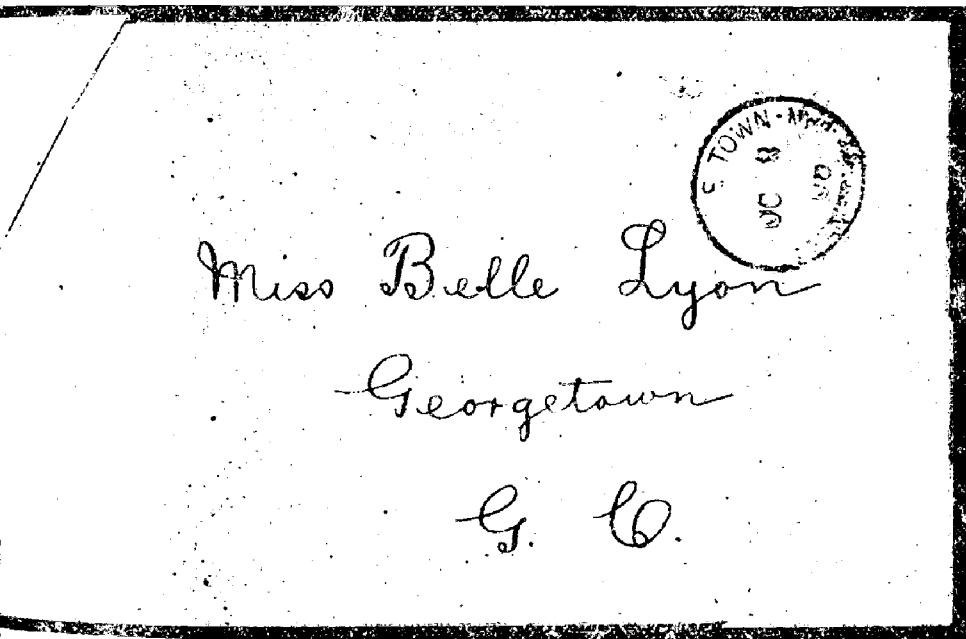 TOWN
Miss Belle Lyon
Georgetown
G. O.